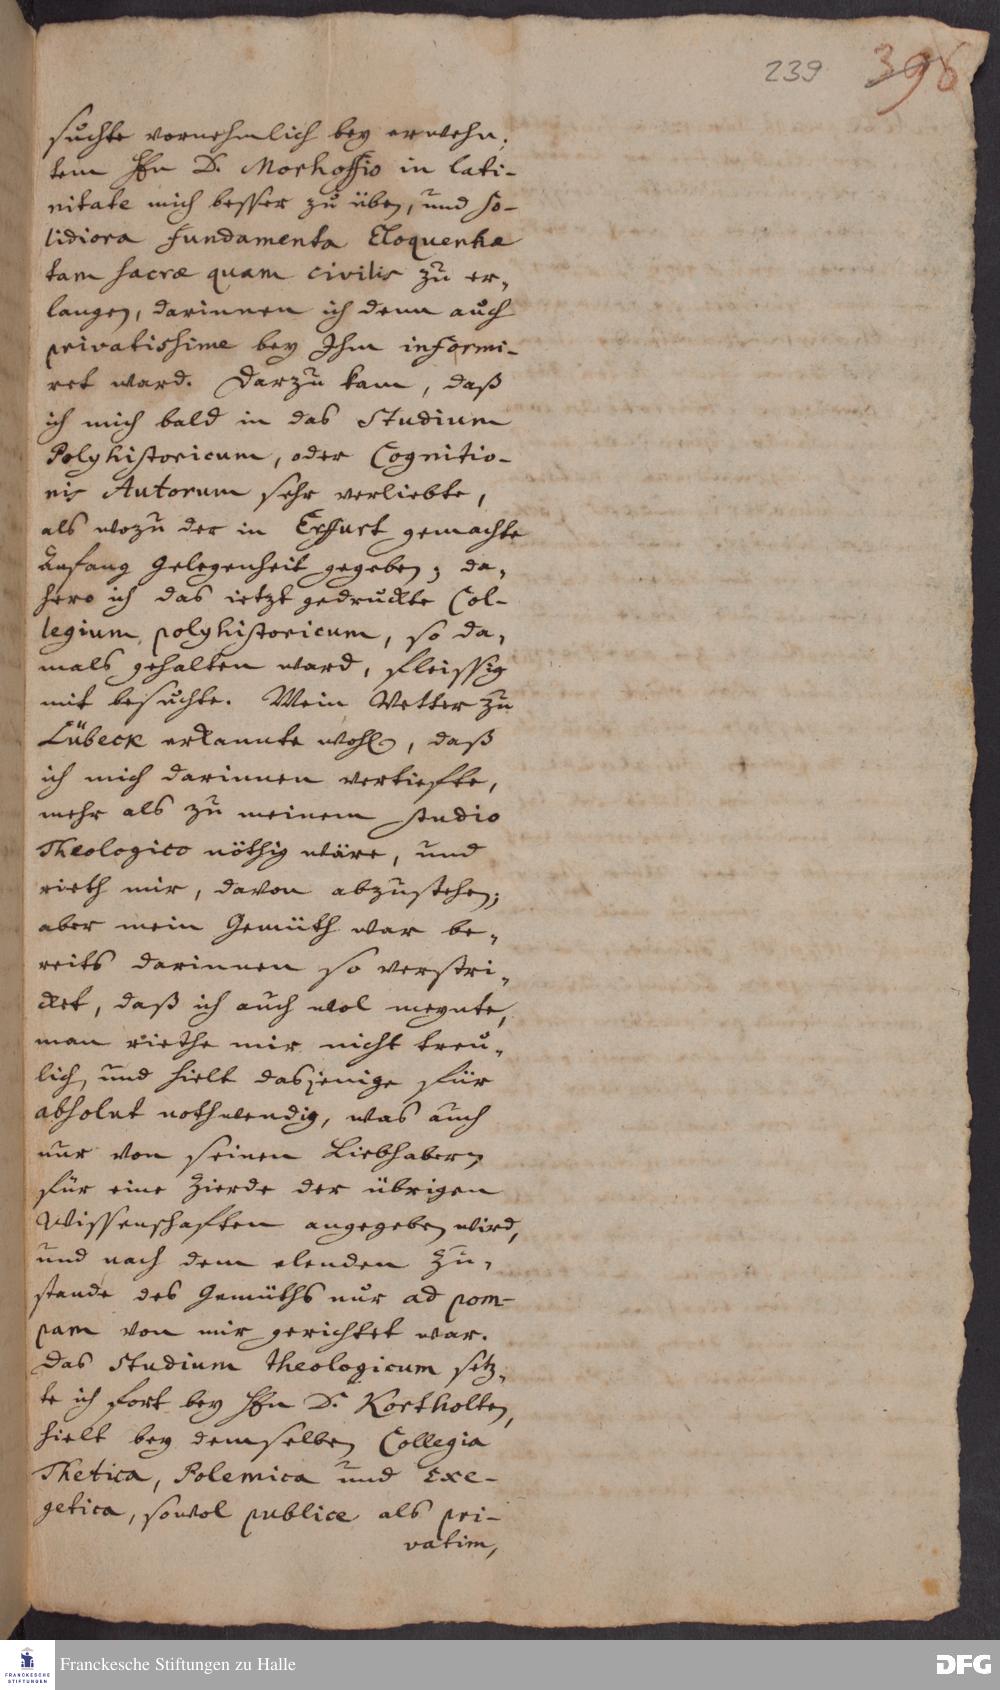 239 398
suchte vornehmlich bey erwehn,
tem Hn D. Morhoffio in lati-
nitate mich besser zu üben, und so-
lidiora fundamenta Eloquentiæ
tam sacræ quam civilis zu er,
langen, darinnen ich denn auch
privatissime bey Ihm informi-
ret ward. Darzu kam, daß
ich mich bald in das Studium
Polyhistoricum, oder Cognitio-
nis Autorum sehr verliebte,
als wozu der in Erffurt gemachte
Anfang Gelegenheit gegeben; da,
hero ich das ietzt gedruckte Col-
legium polyhistoricum, so da,
mals gehalten ward, fleissig
mit besuchte. Mein Vetter zu
Lübeck erkannte wohl, daß
ich mich darinnen vertiefte,
mehr als zu meinem studio
Theologico nöthig wäre, und
rieth mir, davon abzustehen;
aber mein Gemüth war be,
reits darinnen so verstri,
cket, daß ich auch wol meynte,
man riethe mir nicht treu,
lich, und hielt dasjenige für
absolut nothwendig, was auch
nur von seinen Liebhabern
für eine Zierde der übrigen
Wissenschaften angegeben wird,
und nach dem elenden Zu,
stande des Gemüths nur ad pom-
pam von mir gerichtet war.
Das Studium theologicum setz,
te ich fort bey Hn D. Kortholten,
hielt bey demselben Collegia
Thetica, Polemica und Exe-
getica, sowol publice als pri-
vatim,
FRANCKESCHE
STIFTUNGEN
Franckesche Stiftungen zu Halle
DFG